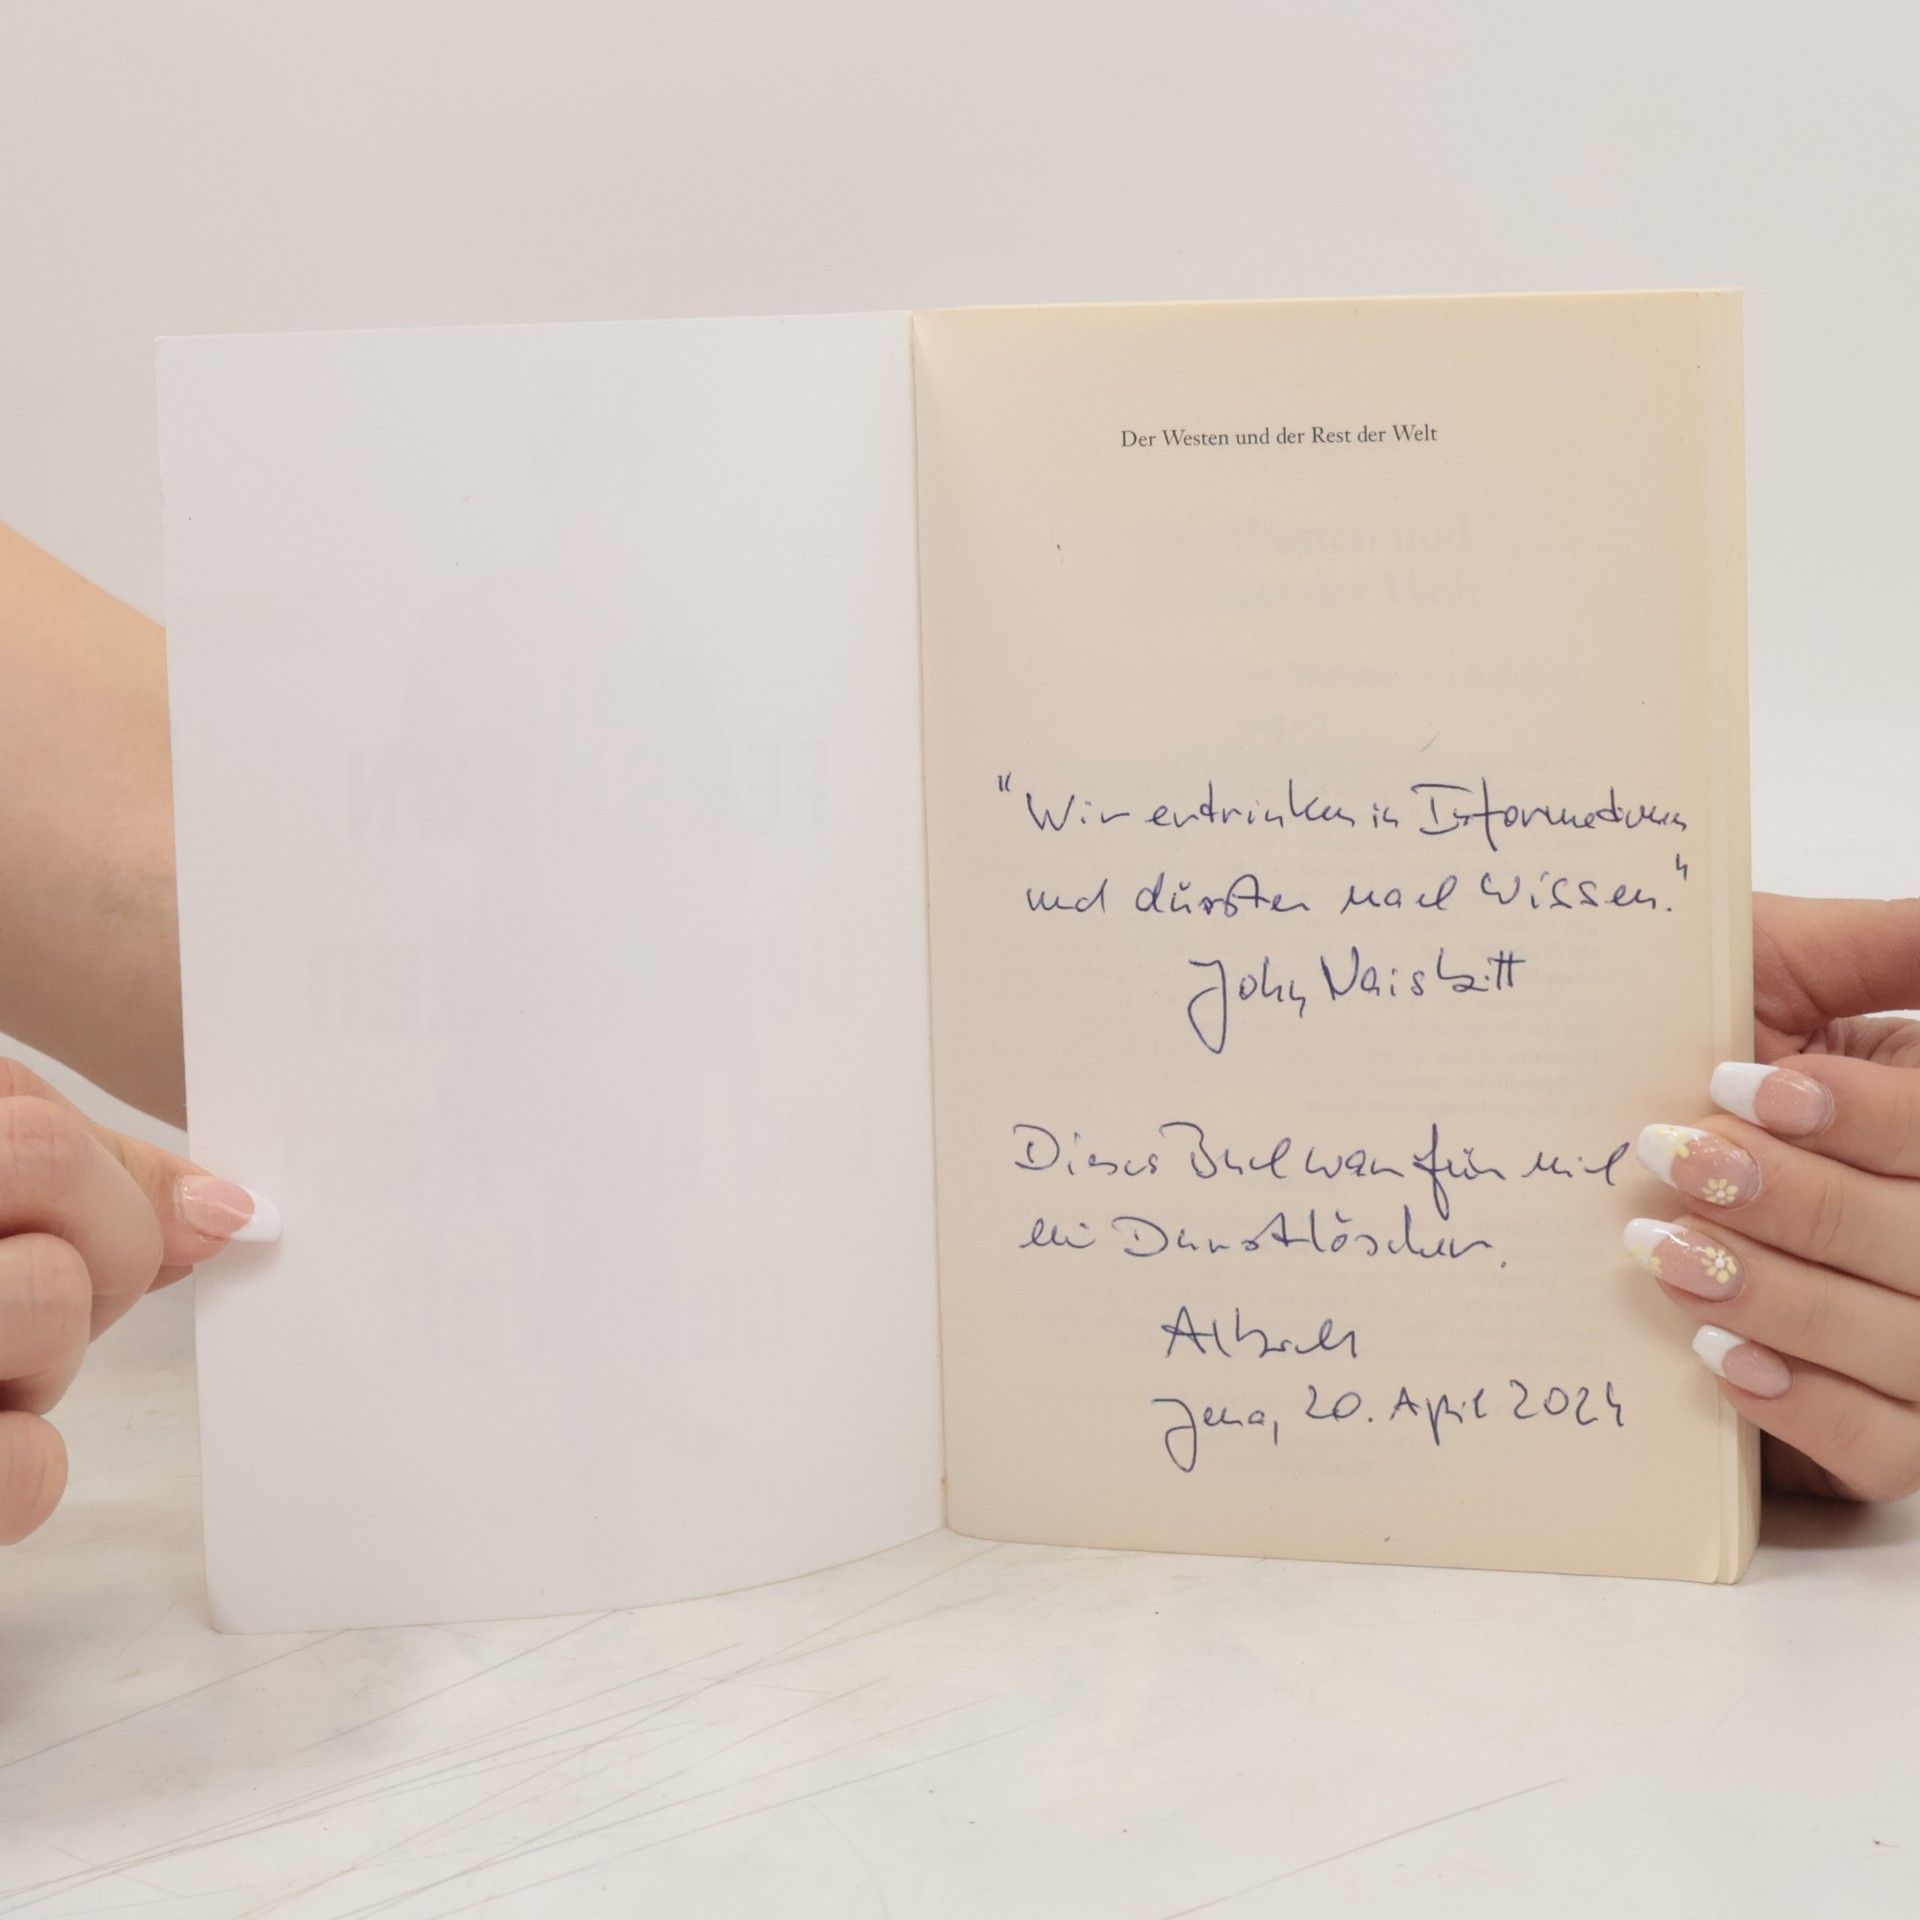 Der Westen und der Rest der Welt
"Wir ertrinken in Informationen
und dürsten nach Wissen."
John Naisbitt
Dieses Buch war für mich
ein Durstlöscher.
Jena, 20. April 2024